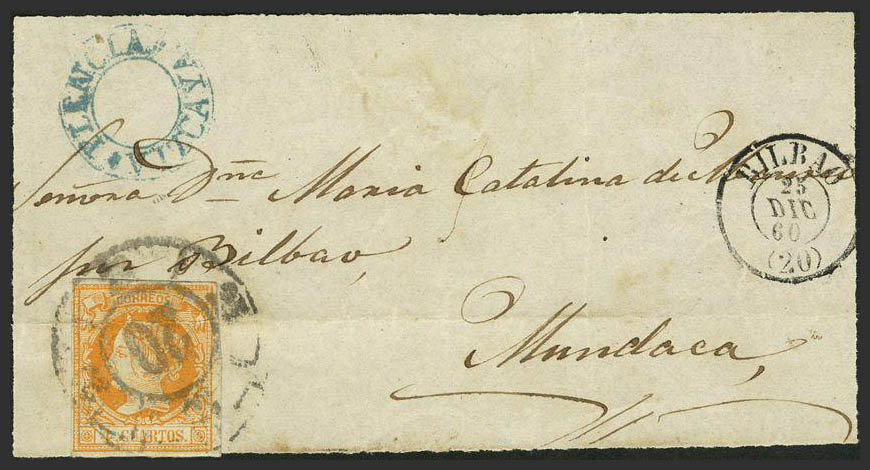 PLENCIA VIZCAYA
Señora Dña Maria Catalina de
por Bilbao,
Mundaca,
BILBAO
25
DIC
60
(20)
CORREOS
20
CUARTOS.